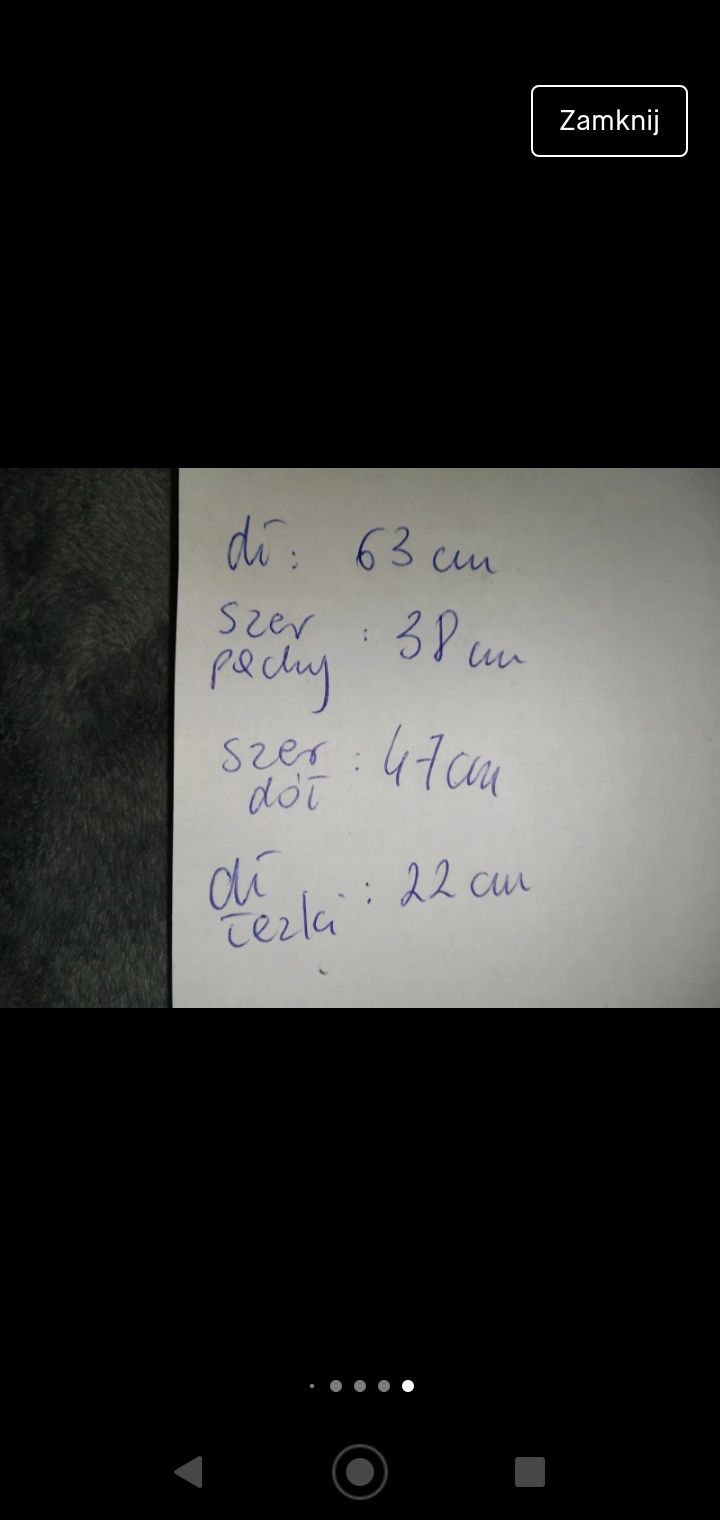 Zamknij
dł: 63 cm
szer
pachy : 38 cm
szer
dół : 47 cm
dł
łezki : 22 cm